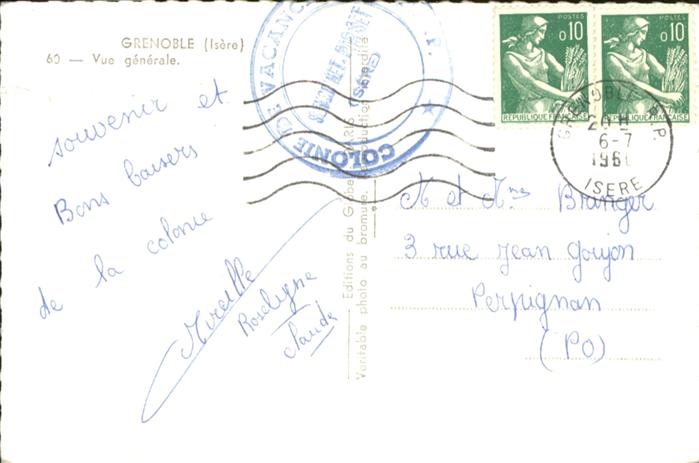 GRENOBLE (Isère)
60 — Vue générale.
souvenir et
Bons baisers
de la colonie
Mireille
Roselyne
Claude
COLONIE DE VACANC
P.
Editions du
Véritable photo au bromure
POSTES
0,10
REPUBLIQUE FRANÇAISE
POSTES
0,10
REPUBLIQUE FRANÇAISE
GRENOBLE R.P.
20 H
6-7
196
ISERE
M et Mme Branger
3 rue Jean Goujon
Perpignan
(PO)